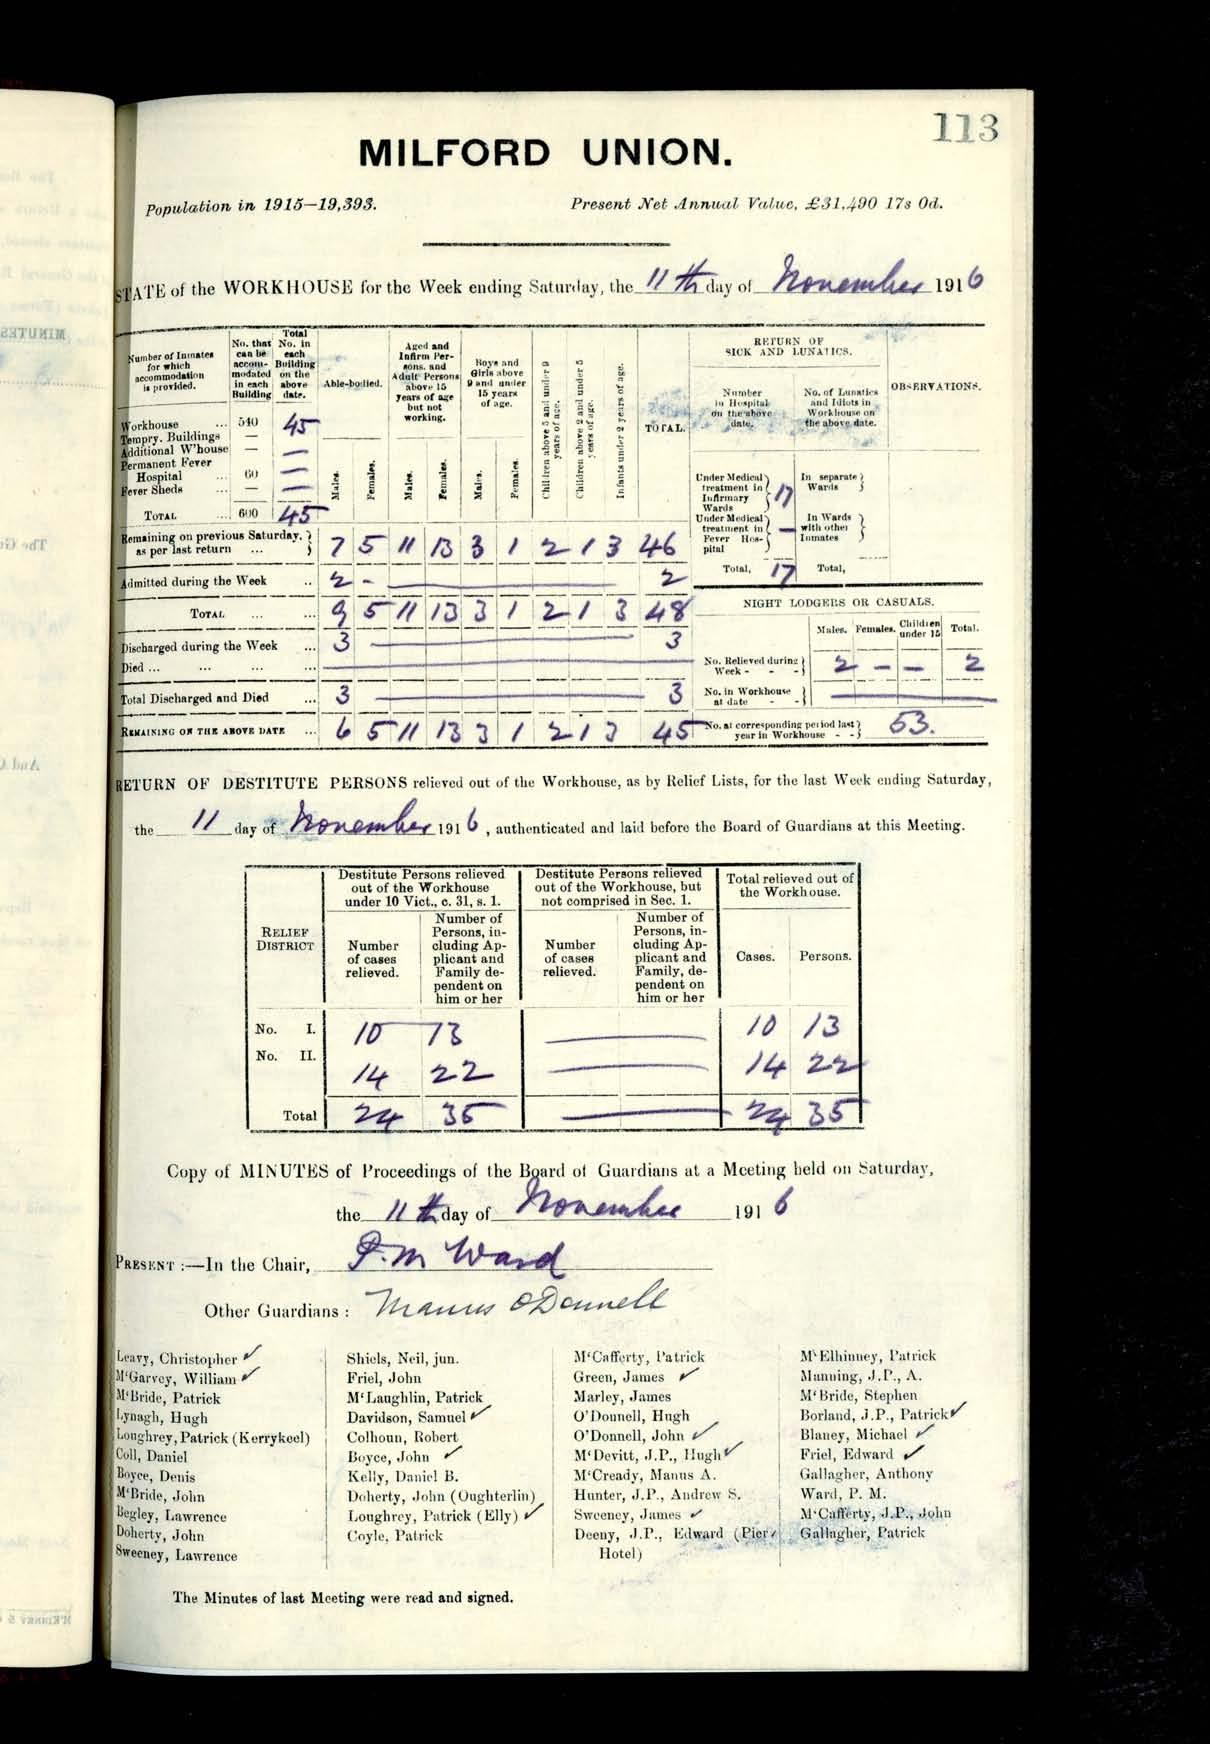 113
MILFORD UNION.
Population in 1915—19,393. Present Net Annual Value, £31,490 17s 0d.
STATE of the WORKHOUSE for the Week ending Saturday, the 11th day of November 1916
Number of Inmates for which accommodation is provided.
No. that can be accommodated in each Building
Total No. in each Building on the above date.
Able-bodied.
Aged and Infirm Persons, and Adult Persons above 15 years of age but not working.
Boys and Girls above 9 and under 15 years of age.
Children above 5 and under 9 years of age.
Children above 2 and under 5 years of age.
Infants under 2 years of age.
TOTAL.
RETURN OF SICK AND LUNATICS.
Number in Hospital on the above date.
No. of Lunatics and Idiots in Workhouse on the above date.
OBSERVATIONS.
Males. Females. Males. Females. Males. Females.
Workhouse ... 540 45
Tempry. Buildings — —
Additional W'house — —
Permanent Fever Hospital ... 60 —
Fever Sheds ... — —
TOTAL ... 600 45
Under Medical treatment in Infirmary Wards 17
In separate Wards
Under Medical treatment in Fever Hospital —
In Wards with other Inmates
Total, 17 Total,
Remaining on previous Saturday, as per last return ... 7 5 11 13 3 1 2 1 3 46
Admitted during the Week .. 2 - 2
TOTAL ... ... 9 5 11 13 3 1 2 1 3 48
Discharged during the Week ... 3 3
Died ... ... ... ...
Total Discharged and Died ... 3 3
REMAINING ON THE ABOVE DATE ... 6 5 11 13 3 1 2 1 3 45
NIGHT LODGERS OR CASUALS.
Males. Females. Children under 15 Total.
No. Relieved during Week - - - 2 — — 2
No. in Workhouse at date - -
No. at corresponding period last year in Workhouse - - 53.
RETURN OF DESTITUTE PERSONS relieved out of the Workhouse, as by Relief Lists, for the last Week ending Saturday,
the 11 day of November 1916, authenticated and laid before the Board of Guardians at this Meeting.
RELIEF DISTRICT
Destitute Persons relieved out of the Workhouse under 10 Vict., c. 31, s. 1.
Destitute Persons relieved out of the Workhouse, but not comprised in Sec. 1.
Total relieved out of the Workhouse.
Number of cases relieved.
Number of Persons, including Applicant and Family dependent on him or her
Number of cases relieved.
Number of Persons, including Applicant and Family, dependent on him or her
Cases. Persons.
No. I. 10 13 10 13
No. II. 14 22 14 22
Total 24 35 24 35
Copy of MINUTES of Proceedings of the Board of Guardians at a Meeting held on Saturday,
the 11th day of November 1916
PRESENT :—In the Chair, P. M Ward
Other Guardians : Manus O'Donnell
Leavy, Christopher ✓
M'Garvey, William ✓
M'Bride, Patrick
Lynagh, Hugh
Loughrey, Patrick (Kerrykeel)
Coll, Daniel
Boyce, Denis
M'Bride, John
Begley, Lawrence
Doherty, John
Sweeney, Lawrence
Shiels, Neil, jun.
Friel, John
M'Laughlin, Patrick
Davidson, Samuel ✓
Colhoun, Robert
Boyce, John ✓
Kelly, Daniel B.
Doherty, John (Oughterlin)
Loughrey, Patrick (Elly) ✓
Coyle, Patrick
M'Cafferty, Patrick
Green, James ✓
Marley, James
O'Donnell, Hugh
O'Donnell, John ✓
M'Devitt, J.P., Hugh ✓
M'Cready, Manus A.
Hunter, J.P., Andrew S.
Sweeney, James ✓
Deeny, J.P., Edward (Pier
Hotel)
M'Elhinney, Patrick
Manning, J.P., A.
M'Bride, Stephen
Borland, J.P., Patrick ✓
Blaney, Michael ✓
Friel, Edward ✓
Gallagher, Anthony
Ward, P. M.
M'Cafferty, J.P., John
Gallagher, Patrick
The Minutes of last Meeting were read and signed.